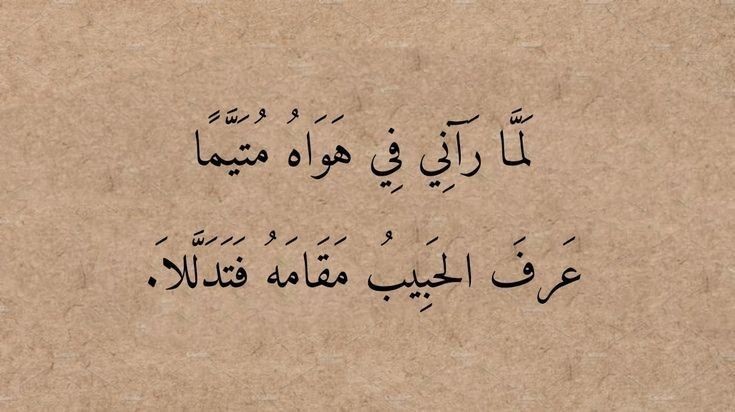 لَمَّا رَآنِي فِي هَوَاهُ مُتَيَّمًا
عَرفَ الحَبِيبُ مَقَامَهُ فَتَدَلَّلاَ.